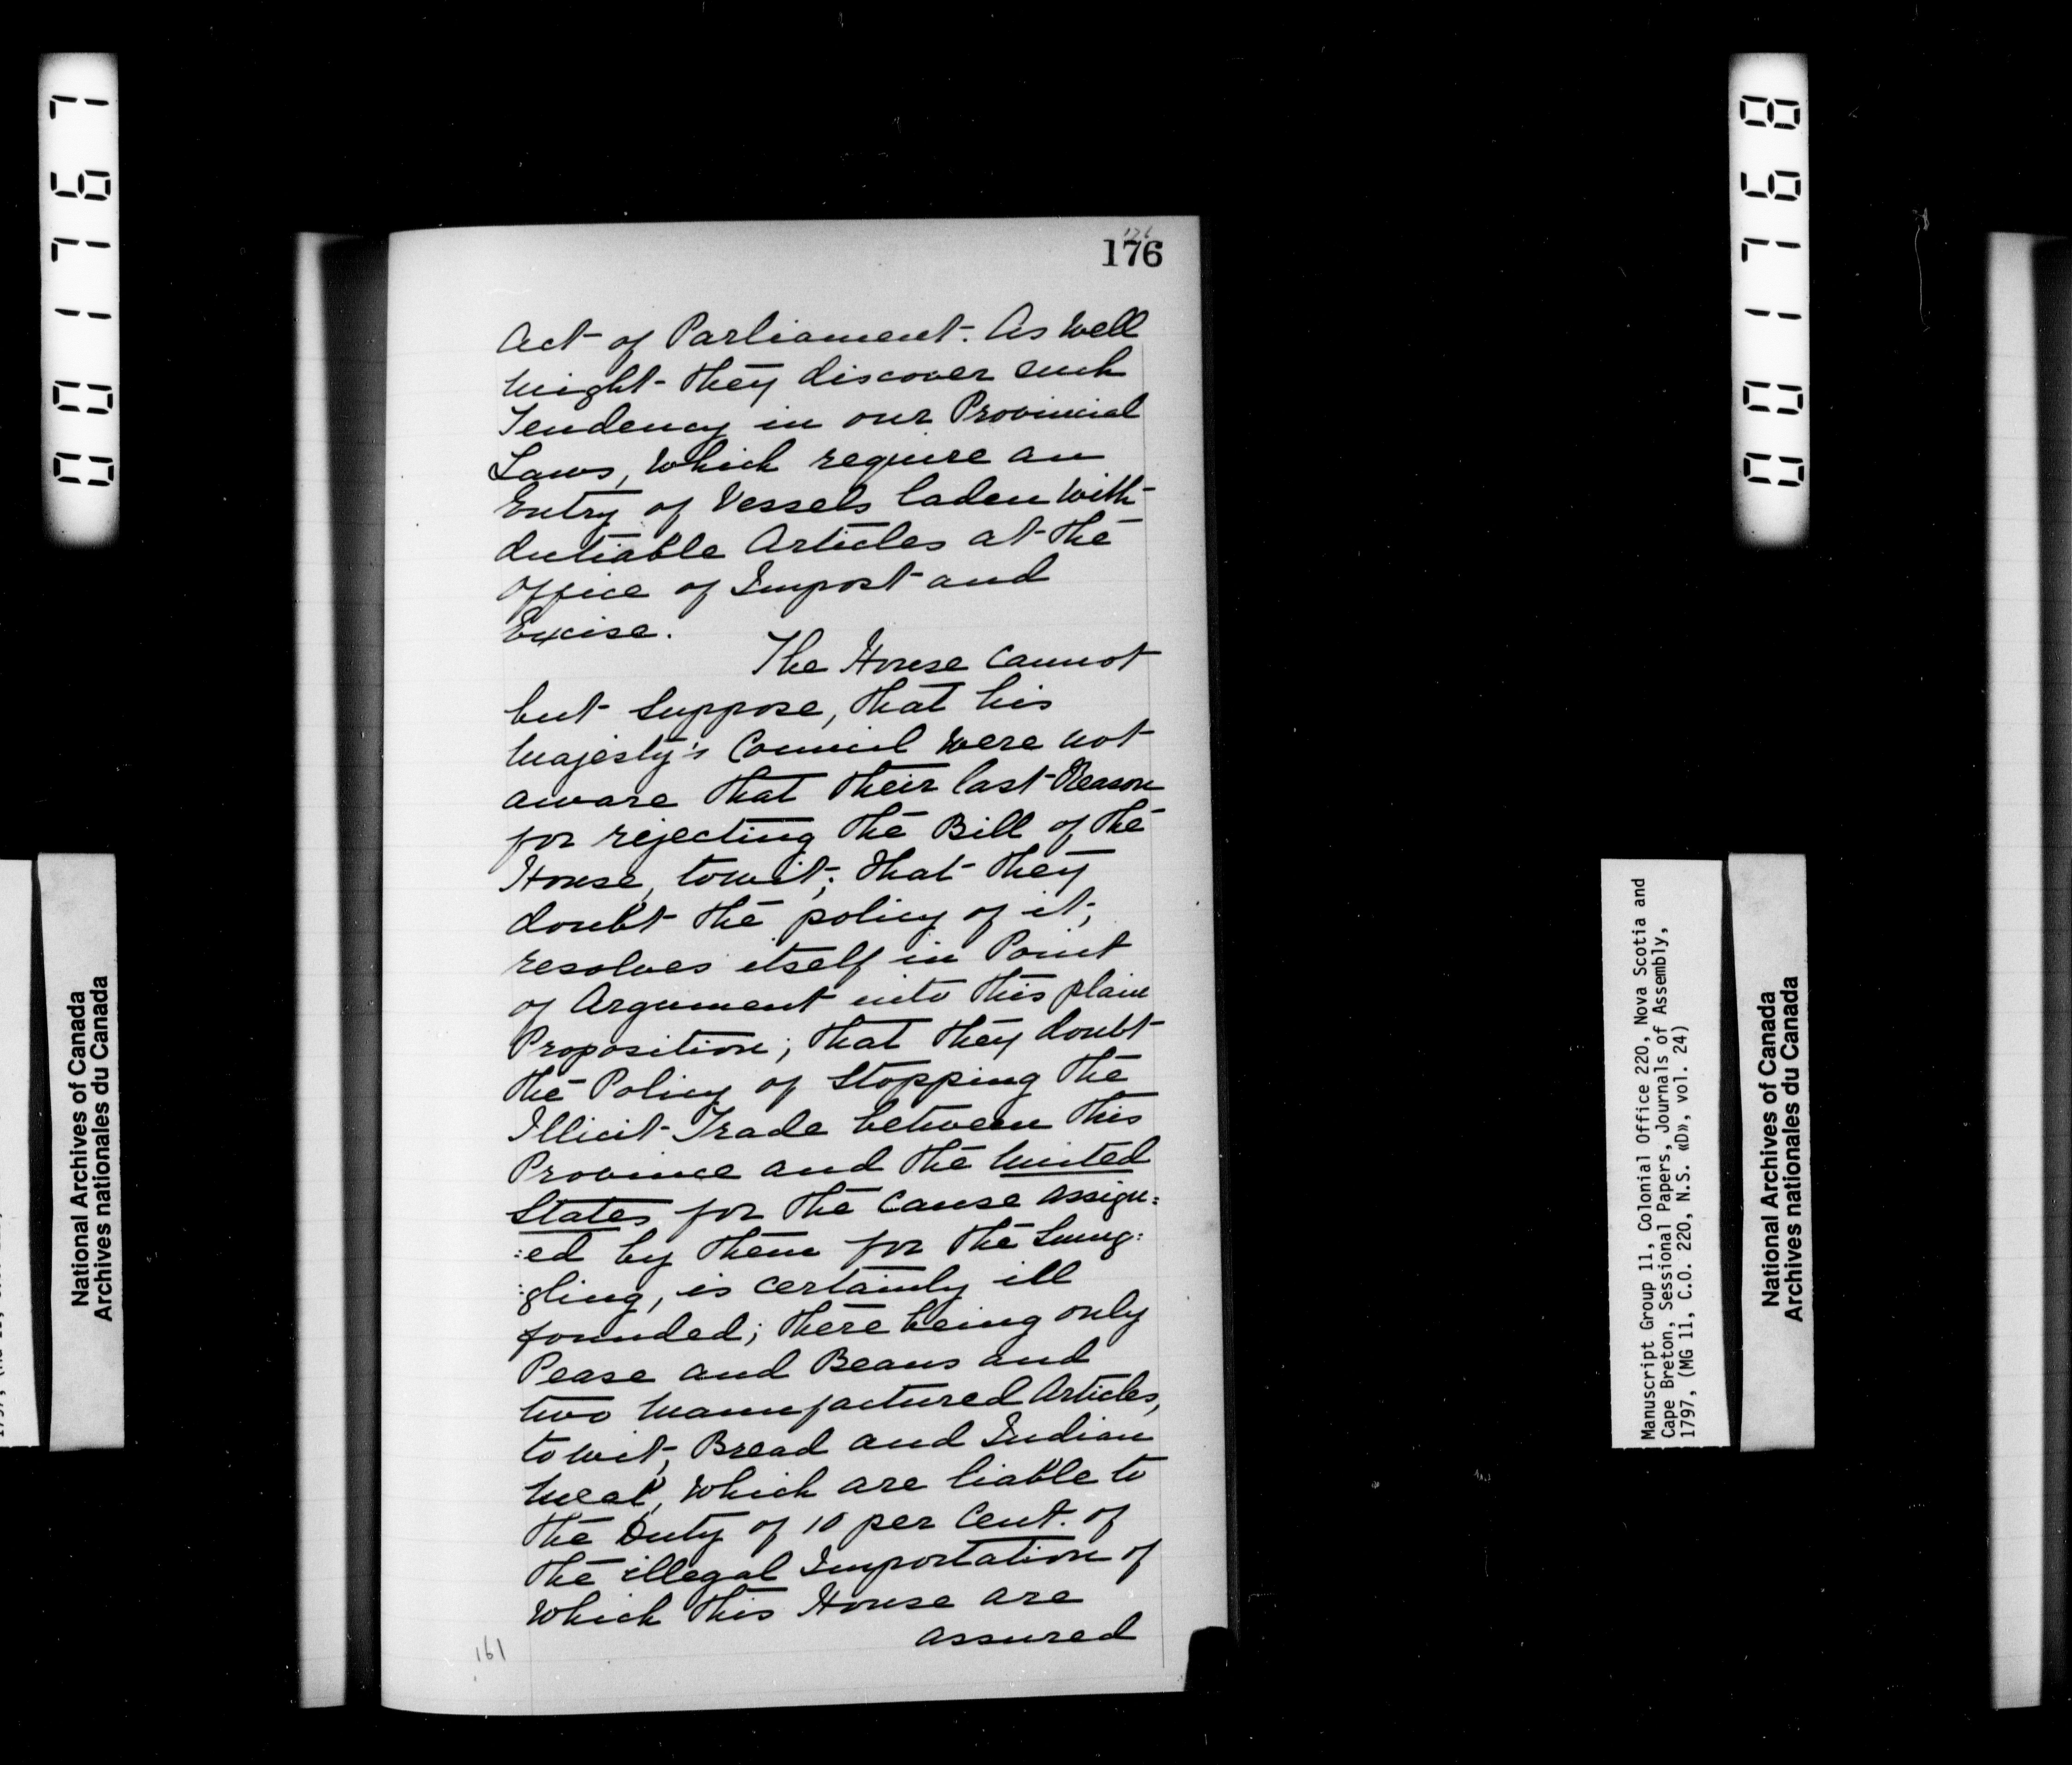 001767
001768
176
176
Act of Parliament. As well
might they discover such
Tendency in our Provincial
Laws, which require an
Entry of Vessels laden with
dutiable Articles at the
Office of Impost and
Excise.
The House cannot
but suppose, that his
Majesty's Council were not
aware that their last Reason
for rejecting the Bill of the
House, towit; that they
doubt the policy of it,
resolves itself in Point
of Argument into this plain
Proposition; that they doubt
the Policy of Stopping the
Illicit Trade between this
Province and the United
States for the cause assign:
:ed by them for the Smug:
:gling, is certainly ill
founded; there being only
Pease and Beans and
two Manufactured Articles,
towit, Bread and Indian
Meal, which are liable to
the Duty of 10 per Cent. of
the illegal Importation of
which this House are
assured
161
National Archives of Canada
Archives nationales du Canada
Manuscript Group 11, Colonial Office 220, Nova Scotia and
Cape Breton, Sessional Papers, Journals of Assembly,
1797, (MG 11, C.O. 220, N.S. «D», vol. 24)
National Archives of Canada
Archives nationales du Canada